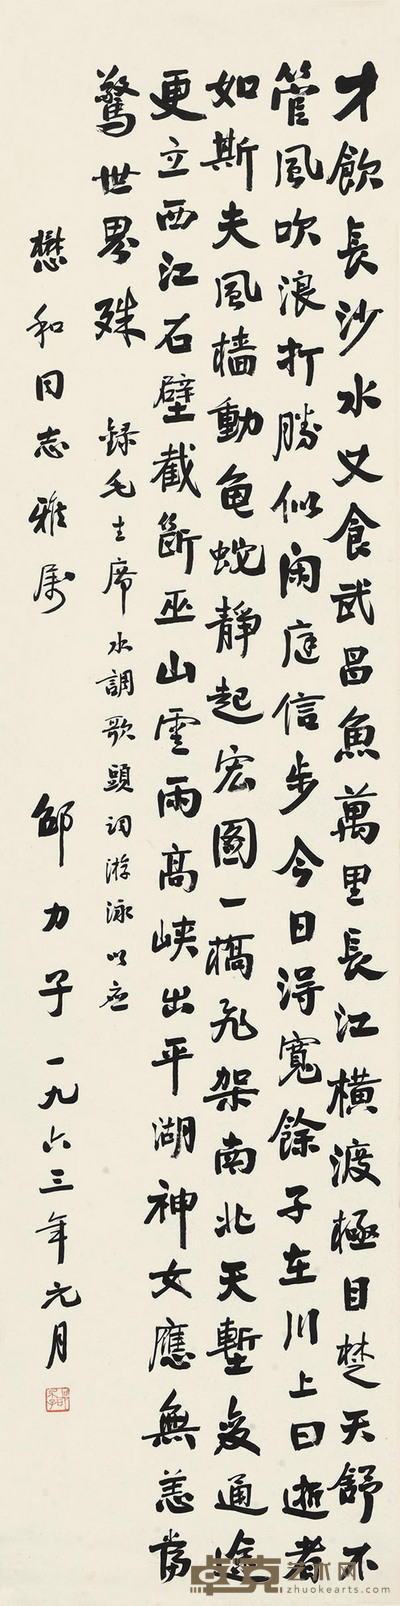 才飲長沙水又食武昌魚萬里長江橫渡極目楚天舒不
管風吹浪打勝似閑庭信步今日得寬餘子在川上曰逝者
如斯夫風檣動龜蛇靜起宏圖一橋飛架南北天塹變通途
更立西江石壁截斷巫山雲雨高峽出平湖神女應無恙當
驚世界殊
錄毛主席水調歌頭詞游泳以应
懋和同志雅属
邵力子一九六三年元月
卓克艺术网
zhuokearts.com